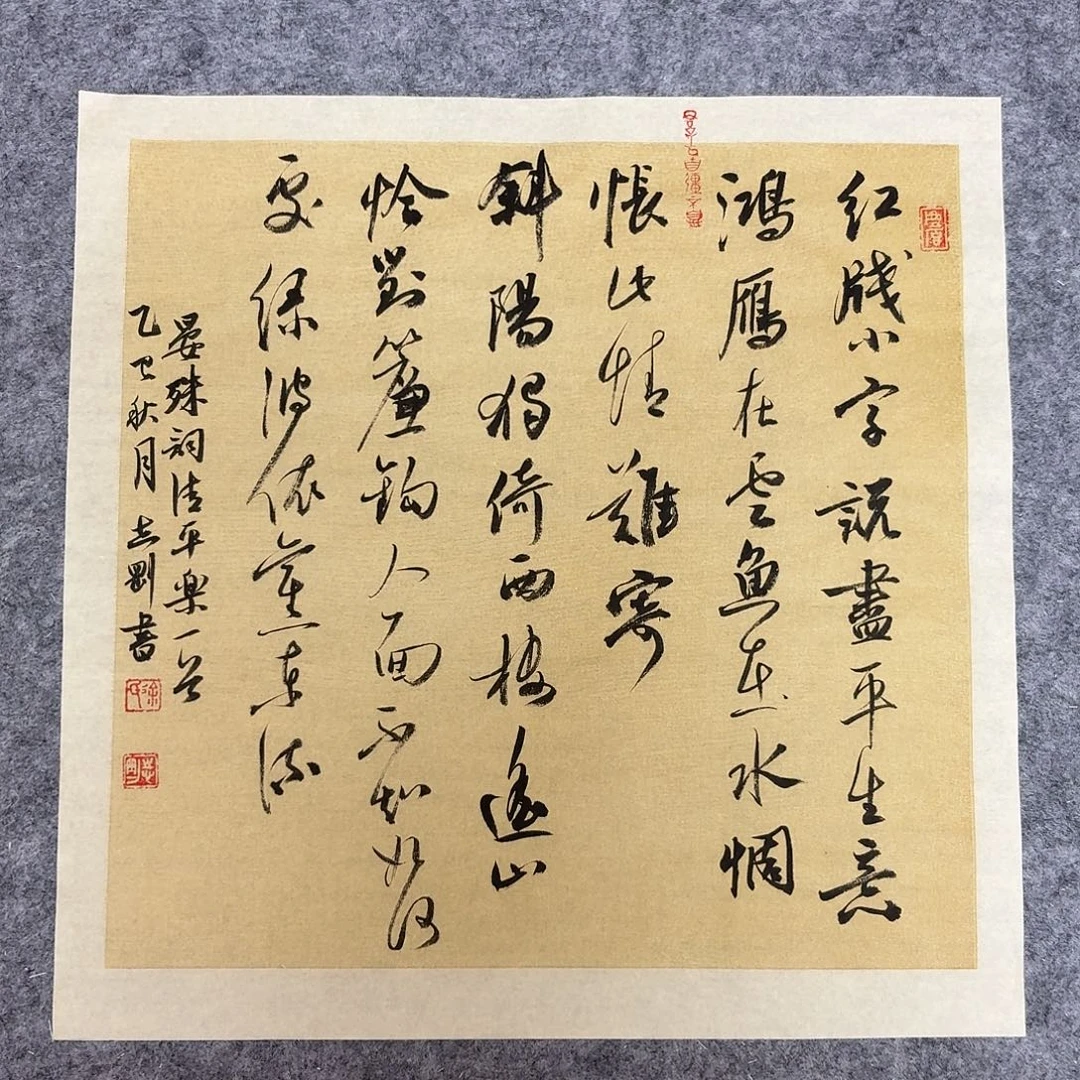 红牋小字説盡平生意
鴻雁在雲魚在水惆
悵此情難寄
斜陽獨倚西楼遥山
恰對簾鈎人面不知如何
處緑波依舊東流
晏殊詞清平楽一首
乙巳秋月志剛書
徐氏